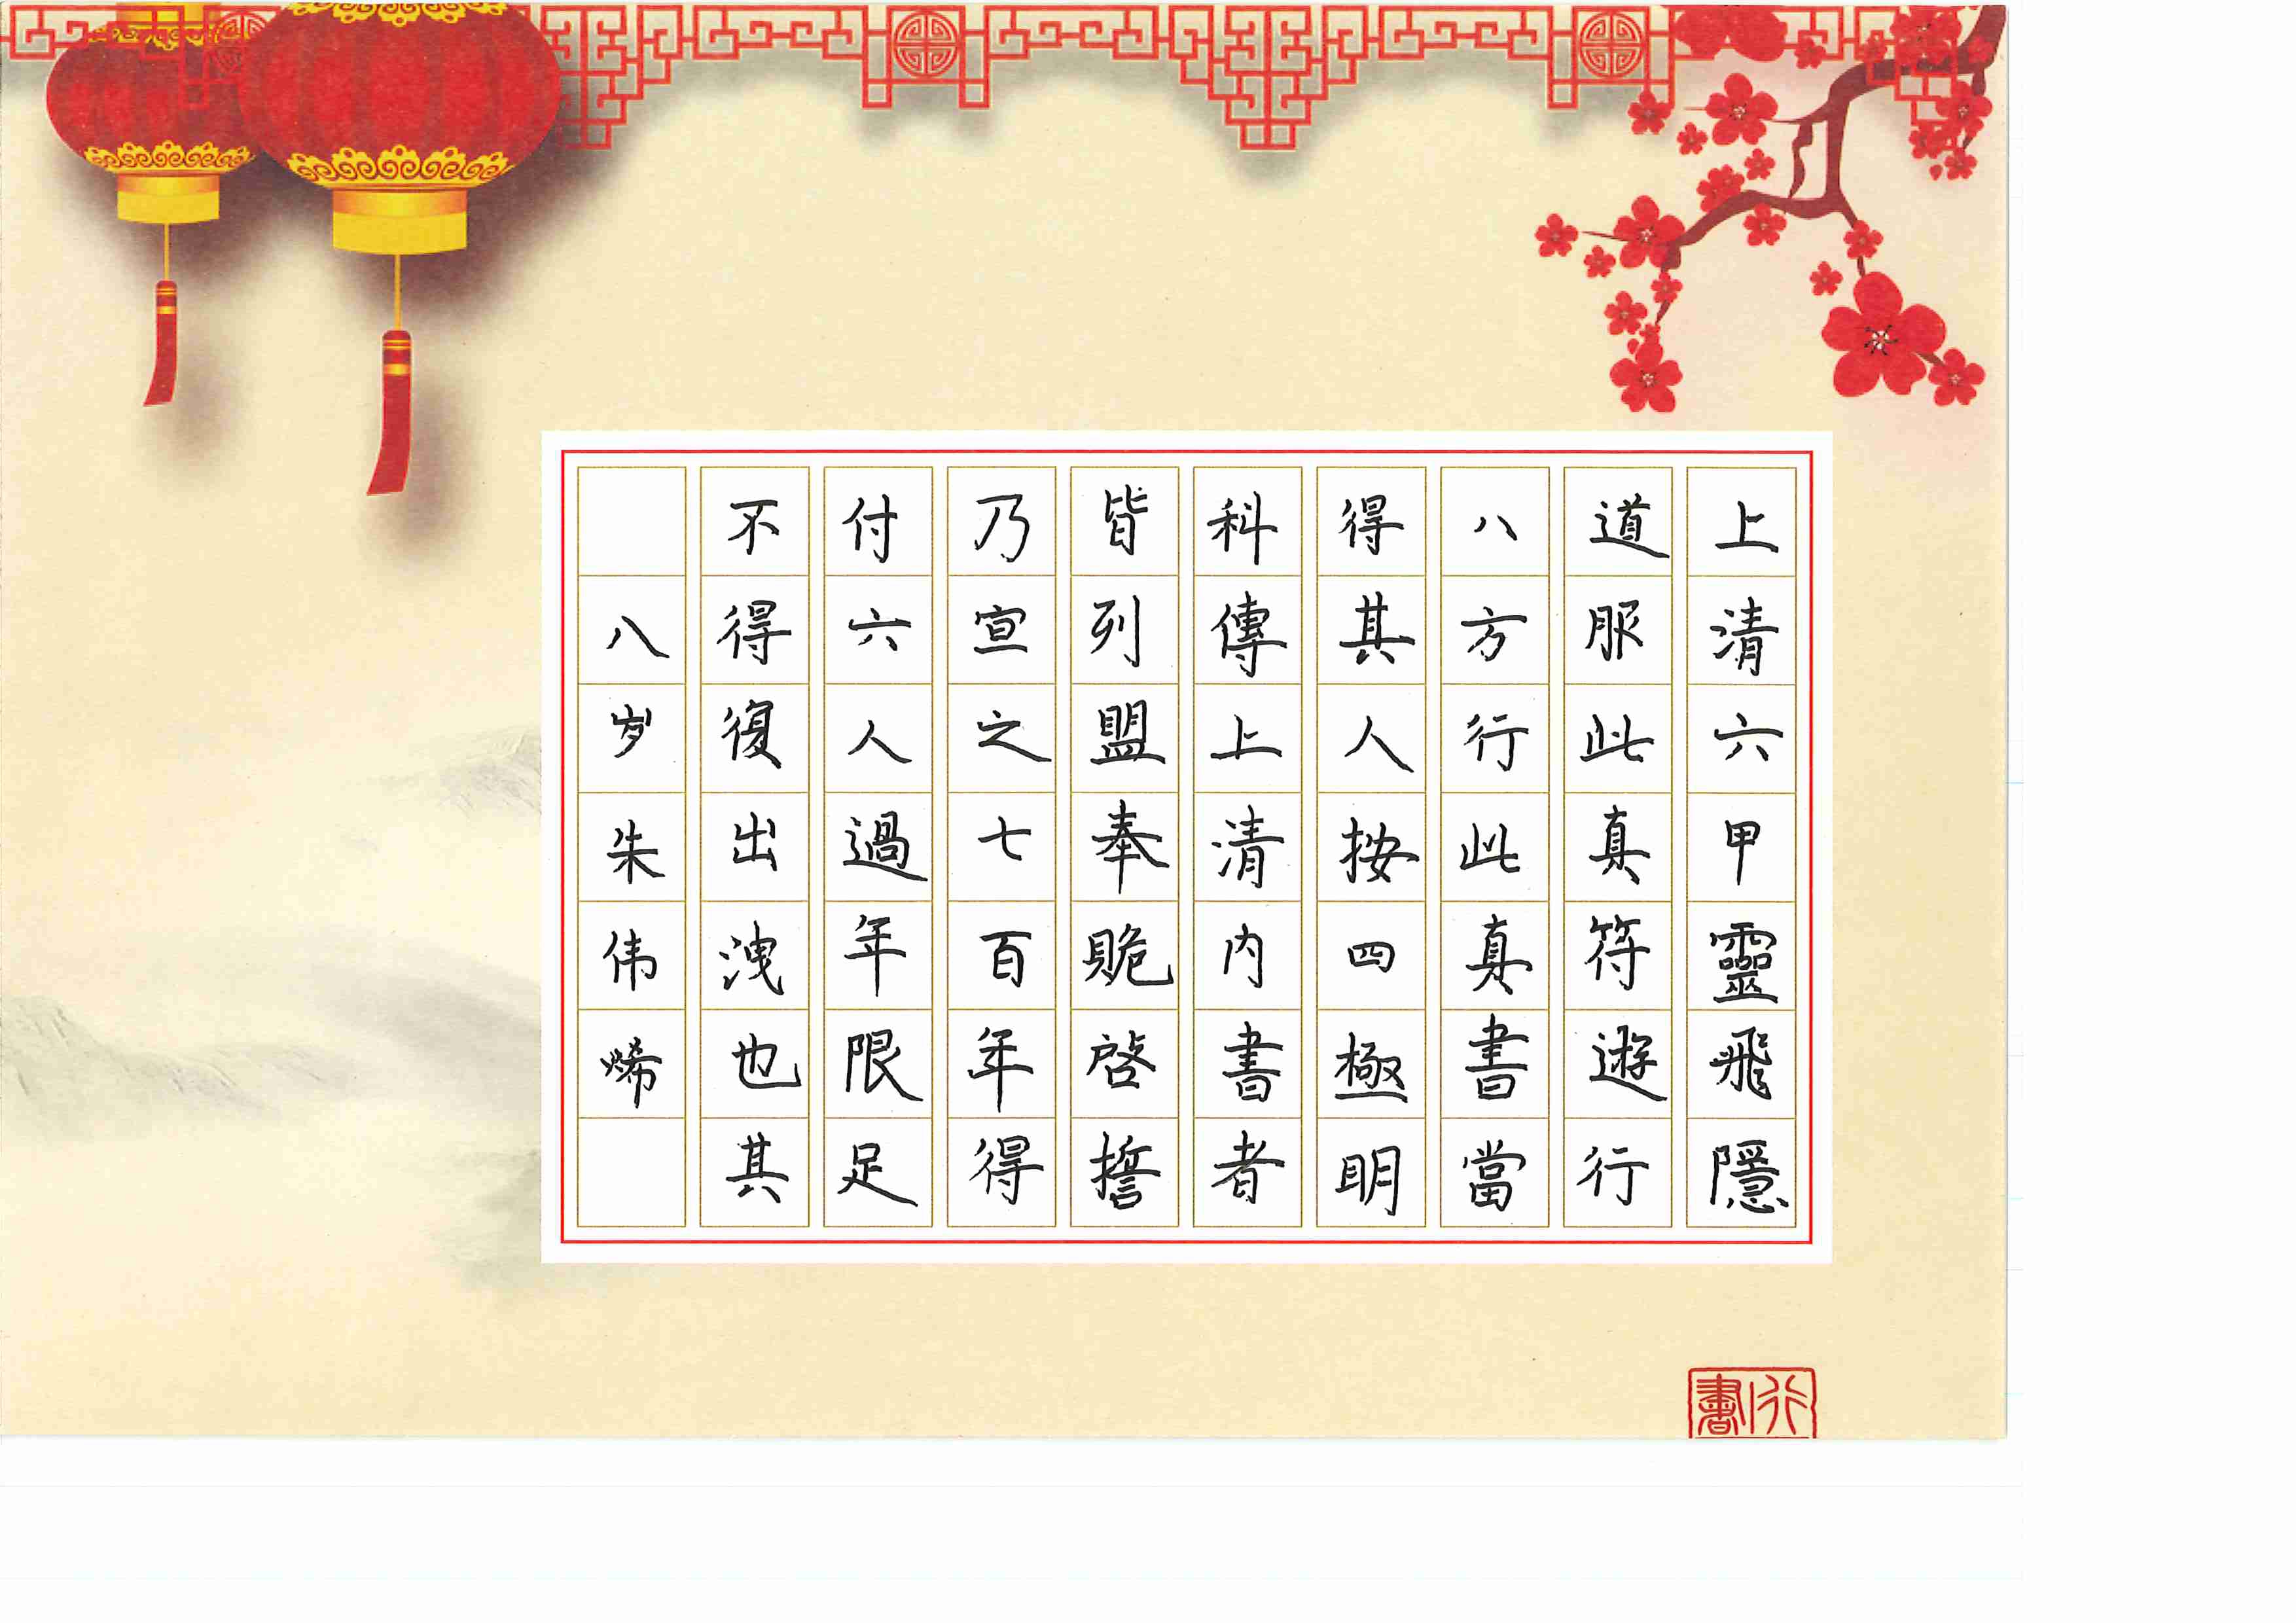 上清六甲靈飛隱
道服此真符遊行
八方行此真書當
得其人按四極明
科傳上清内書者
皆列盟奉跪啓誓
乃宣之七百年得
付六人過年限足
不得復出洩也其
八岁朱伟烯
行書